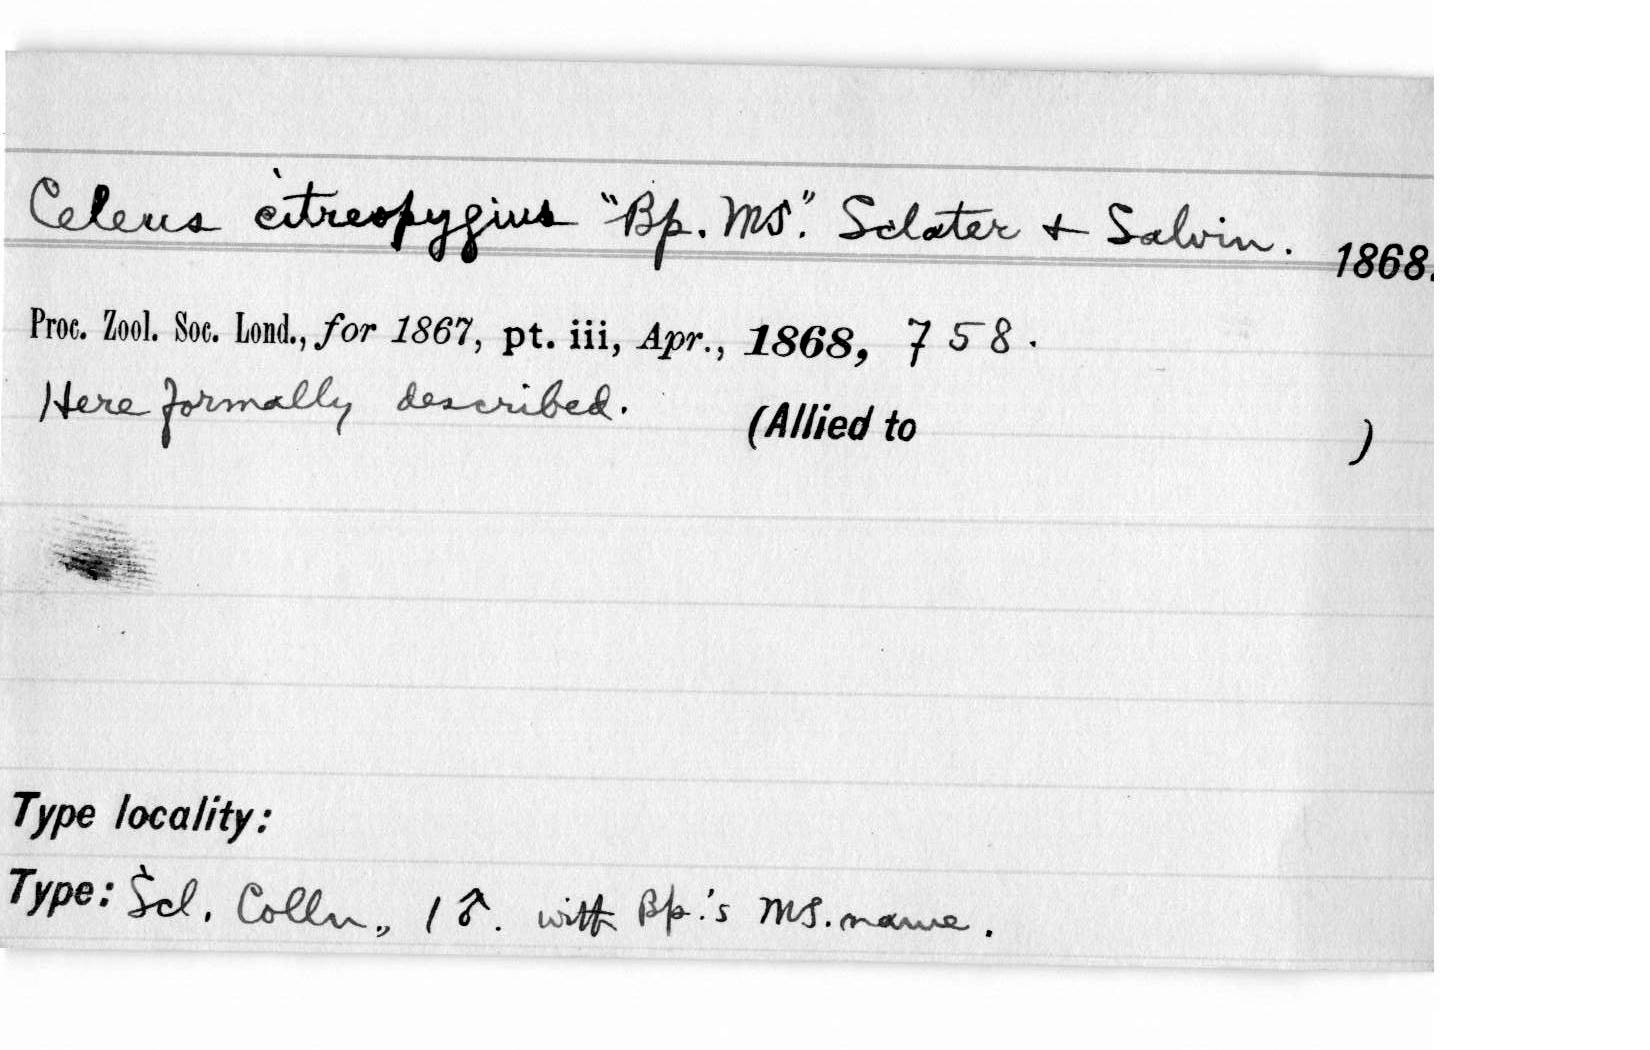 Celeus citreopygius "Bp. MS." Sclater + Salvin. 1868.
Proc. Zool. Soc. Lond., for 1867, pt. iii, Apr., 1868, 758.
Here formally described. (Allied to )
Type locality:
Type: Scl. Colln., 1 ♂. with Bp.'s MS. name.